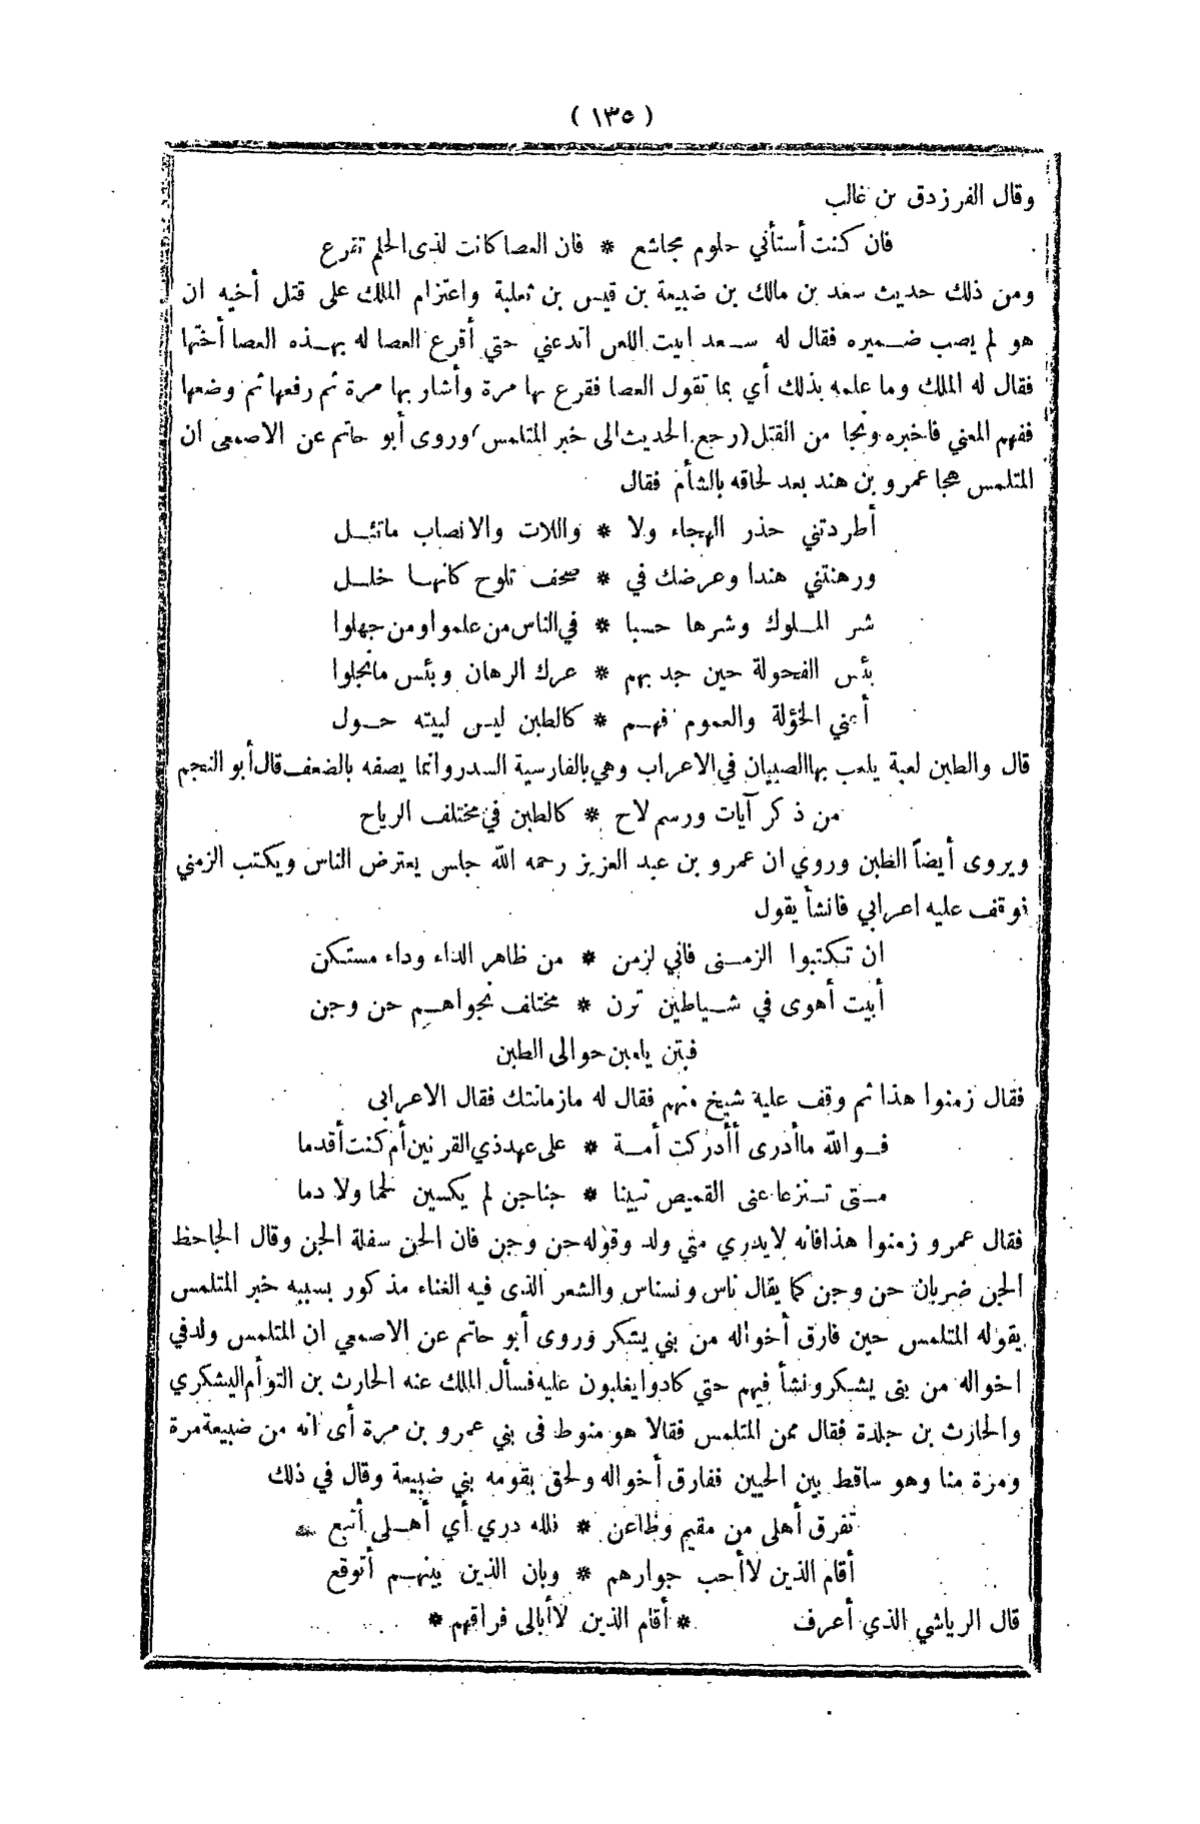 ( ١٣٥ )
وقال الفرزدق بن غالب
فان كنت أستأني حلوم مجاشع * فان العصا كانت لذى الحلم تقرع
ومن ذلك حديث سعد بن مالك بن ضبيعة بن قيس بن ثعلبة واعتزام الملك على قتل أخيه ان
هو لم يصب ضميره فقال له سعد ابيت اللعن اتدعني حتي أقرع العصا له بهذه العصا أختها
فقال له الملك وما علمه بذلك أي بما تقول العصا فقرع بها مرة وأشار بها مرة ثم رفعها ثم وضعها
ففهم المعني فاخبره ونجا من القتل (رجع الحديث الى خبر المتلمس) وروى أبو حاتم عن الاصمعى ان
المتلمس هجا عمرو بن هند بعد لحاقه بالشأم فقال
أطردتني حذر الهجاء ولا * واللات والانصاب ماتئل
ورهنتني هندا وعرضك في * صحف تلوح كانها خلل
شر الملوك وشرها حسبا * في الناس من علموا ومن جهلوا
بئس الفحولة حين جد بهم * عرك الرهان وبئس مانجلوا
أبني الخؤلة والعموم فهم * كالطبن ليس لبيته حول
قال والطبن لعبة يلعب بها الصبيان في الاعراب وهي بالفارسية السدر وانما يصفه بالضعف قال أبو النجم
من ذكر آيات ورسم لاح * كالطبن في مختلف الرياح
ويروى أيضاً الطبن وروي ان عمرو بن عبد العزيز رحمه الله جلس يعترض الناس ويكتب الزمني
فوقف عليه اعرابي فانشأ يقول
ان تكتبوا الزمنى فاني لزمن * من ظاهر الداء وداء مستكن
أبيت أهوى في شياطين ترن * مختلف نجواهم حن وجن
فبتن يلعبن حوالى الطبن
فقال زمنوا هذا ثم وقف علية شيخ منهم فقال له مازمانتك فقال الاعرابى
فوالله ماأدرى أأدركت أمة * على عهد ذي القرنين أم كنت أقدما
متى تنزعا عنى القميص تبينا * جناجن لم يكسين لحما ولا دما
فقال عمرو زمنوا هذا فانه لايدري متي ولد وقوله حن وجن فان الحن سفلة الجن وقال الجاحظ
الجن ضربان حن وجن كما يقال ناس ونسناس والشعر الذى فيه الغناء مذكور بسببه خبر المتلمس
يقوله المتلمس حين فارق أخواله من بني يشكر وروى أبو حاتم عن الاصمعي ان المتلمس ولد في
اخواله من بنى يشكر ونشأ فيهم حتي كادوا يغلبون عليه فسأل الملك عنه الحارث بن التوأم اليشكري
والحارث بن جلدة فقال ممن المتلمس فقالا هو منوط فى بني عمرو بن مرة أى انه من ضبيعة مرة
ومرة منا وهو ساقط بين الحيين ففارق أخواله ولحق بقومه بني ضبيعة وقال في ذلك
تفرق أهلى من مقيم وظاعن * فلله دري أي أهلى أتبع
أقام الذين لاأحب جوارهم * وبان الذين بينهم أتوقع
قال الرياشي الذي أعرف * أقام الذين لاأبالى فراقهم *